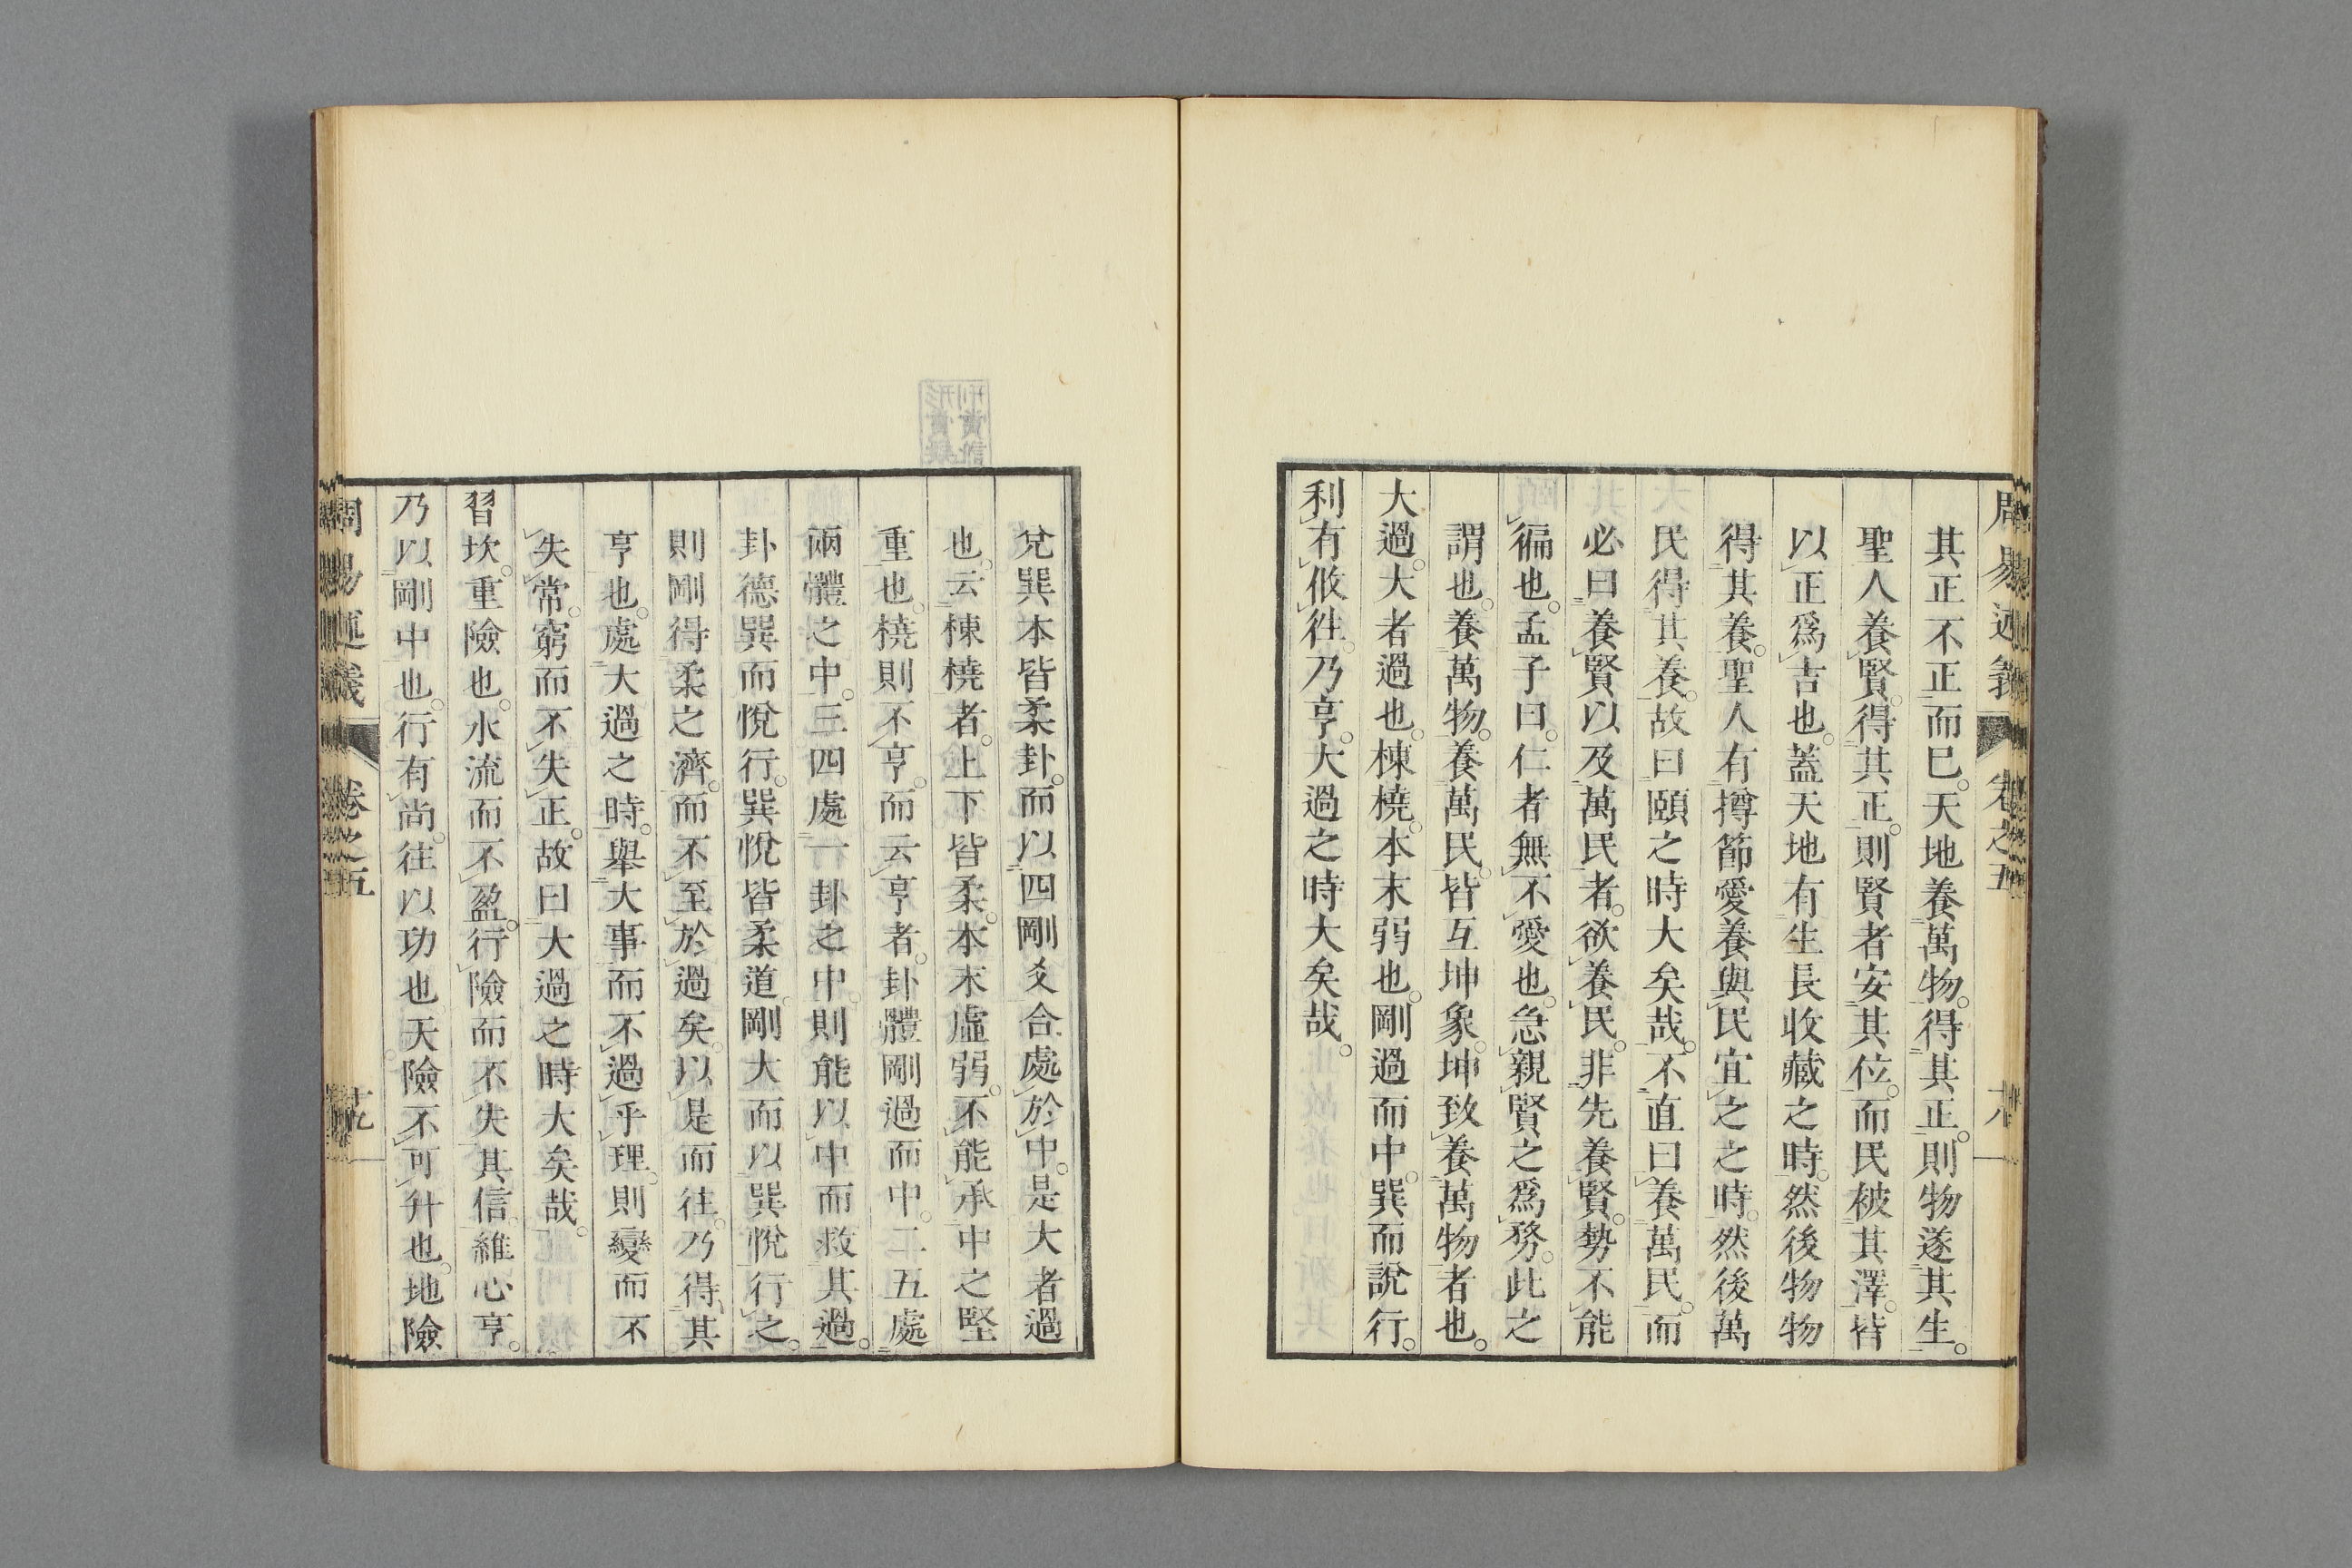 周易述義
卷之五
其正不正而已。天地養萬物。得其正。則物遂其生。
聖人養賢。得其正。則賢者安其位。而民被其澤。皆
以正爲吉也。蓋天地有生長收藏之時。然後物物
得其養。聖人有撙節愛養與民宜之之時。然後萬
民得其養。故曰頤之時大矣哉。不直曰養萬民。而
必曰養賢以及萬民者。欲養民。非先養賢。勢不能
徧也。孟子曰。仁者無不愛也。急親賢之爲務。此之
謂也。養萬物。養萬民。皆互坤象。坤致養萬物者也。
大過。大者過也。棟橈。本末弱也。剛過而中。巽而說行。
利有攸往。乃亨。大過之時大矣哉。
兌巽本皆柔卦。而以四剛爻合處於中。是大者過
也。云棟橈者。上下皆柔。本末虛弱。不能承中之堅
重也。橈則不亨。而云亨者。卦體剛過而中。二五處
兩體之中。三四處一卦之中。則能以中而救其過。
卦德巽而悅行。巽悅皆柔道。剛大而以巽悅行之。
則剛得柔之濟。而不至於過矣。以是而往。乃得其
亨也。處大過之時。舉大事而不過乎理。則變而不
失常。窮而不失正。故曰大過之時大矣哉。
習坎。重險也。水流而不盈。行險而不失其信。維心亨。
乃以剛中也。行有尚。往以功也。天險不可升也。地險
周易述義
卷之五